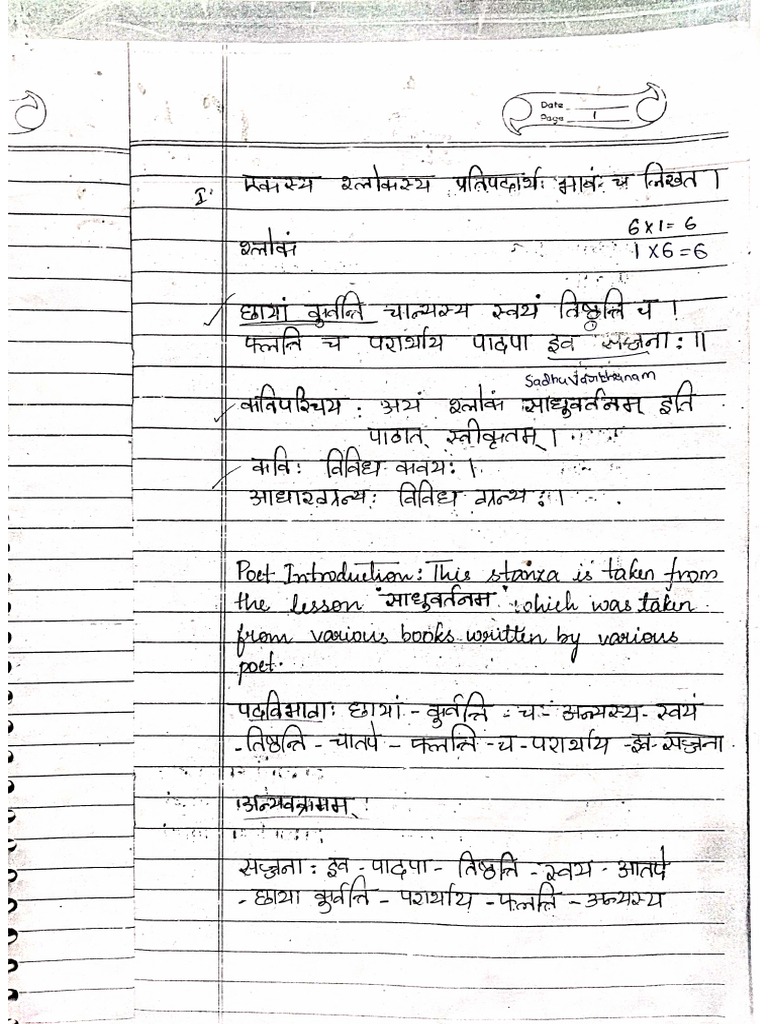 Date
Page 1
I. एकस्य श्लोकस्य प्रतिपदार्थः भावं च लिखत ।
6 x 1 = 6
श्लोकं
1 x 6 = 6
छायां कुर्वन्ति चान्यस्य स्वयं तिष्ठन्ति च ।
फलन्ति च परार्थाय पादपा इव सज्जनाः ॥
कविपरिचयः अयं श्लोकं साधुवर्तनम् इति
पाठात् स्वीकृतम् ।
कविः विविध कवयः ।
आधारग्रन्थः विविध ग्रन्थः ।
Poet Introduction: This stanza is taken from
the lesson 'साधुवर्तनम' which was taken
from various books written by various
poet.
पदविभागः छायां - कुर्वन्ति - च - अन्यस्य - स्वयं
- तिष्ठन्ति - चातपे - फलन्ति - च - परार्थाय - इव - सज्जना
सज्जनाः इव - पादपा - तिष्ठन्ति - स्वय - आतपे
- छाया कुर्वन्ति - परार्थाय - फलन्ति - अन्यस्य